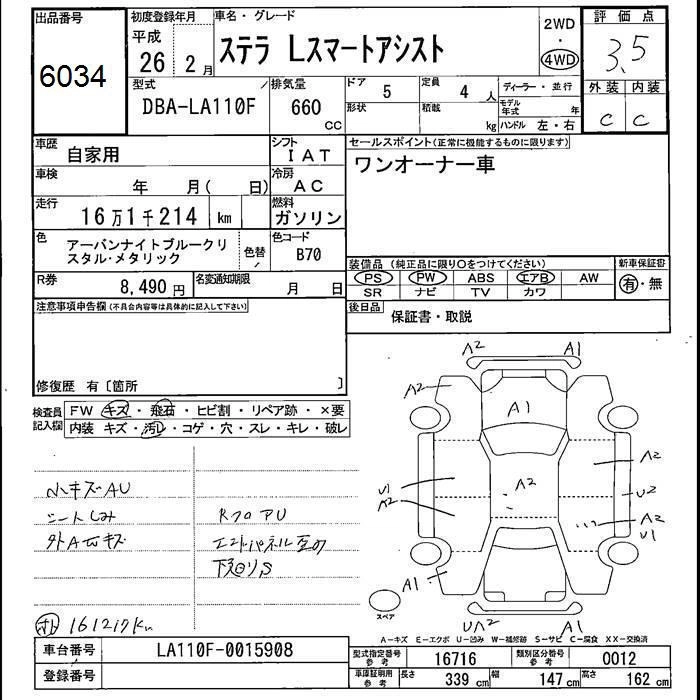 出品番号
6034
初度登録年月
平成
26 2月
車名・グレード
ステラ Lスマートアシスト
2WD
・
4WD
評価点
3.5
外装 内装
C C
型式
DBA-LA110F
排気量
660
CC
ドア 5
定員 4 人
ディーラー・並行
形状
積載 kg
モデル年式 年
ハンドル 左・右
車歴 自家用
シフト IAT
車検 年 月( 日)
冷房 AC
走行 16万1千214 km
燃料 ガソリン
色
アーバンナイトブルークリ
スタル・メタリック
色替
色コード
B70
R券 8,490円
名変通知期限 月 日
セールスポイント(正常に機能するものに限ります)
ワンオーナー車
装備品 (純正品に限り○をつけてください)
PS PW ABS エアB AW
SR ナビ TV カワ
新車保証書
有・無
後日品 保証書・取説
注意事項申告欄(不具合内容等は具体的に記入して下さい)
修復歴 有〔箇所 〕
検査員記入欄
FW キズ・飛石・ヒビ割・リペア跡・×要
内装 キズ・汚レ・コゲ・穴・スレ・キレ・破レ
小キズAU
シートしみ
外AWキズ
RフロアU
下廻りS
161217Km
A2 A1
A2
A1
A2
A2
U1
A2
U2
A2
U1
A1
UA2
A1
スペア
A-キズ E-エクボ U-凹み W-補修跡 S-サビ C-腐食 XX-交換済
車台番号 LA110F-0015908
登録番号
型式指定番号参考 16716
類別区分番号参考 0012
車庫証明用参考 長さ 339 cm 幅 147 cm 高さ 162 cm